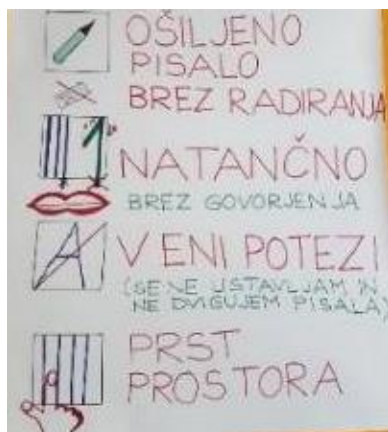 OŠILJENO
PISALO
BREZ RADIRANJA
NATANČNO
BREZ GOVORJENJA
V ENI POTEZI
(SE NE USTAVLJAM IN
NE DVIGUJEM PISALA)
PRST
PROSTORA